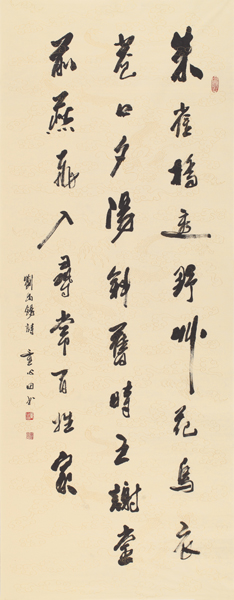 朱雀橋邊野艸花烏衣
巷口夕陽斜舊時王謝堂
前燕飛入尋常百姓家
劉禹錫詩 童心田书